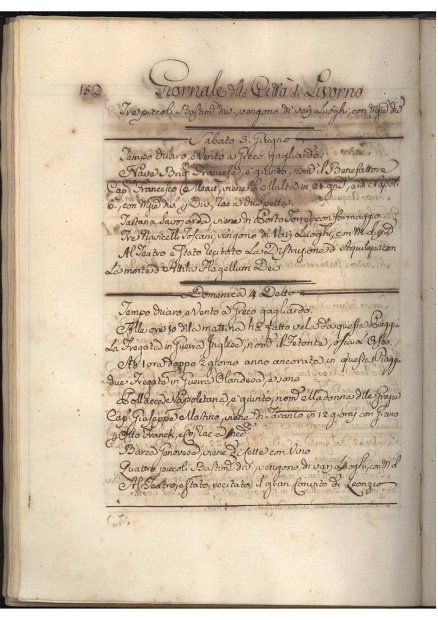 152 Giornale della Città di Livorno
Tre piccoli Bastim.ti div.si vengono di varj Luoghi, con M. div.
Sabato 3. Giugno
Tempo chiaro, e Vento a Greco gagliardo.
Nave Franceſe, è giunto, nom. il Benefattore
Cap. Franceſco viene di Malta in 21 gni, e da Napoli
6. con div.
Tartana Savonarda, viene di Porto Torre, con Formaggio
Tre Navicelli Toscani, vengono di Varj Luoghi, con M. d.
Al Teatro è Stato recitato La Distruzione di Aquileja con
La morte d'Attila Flagellum Dei
Domenica 4. Detto
Tempo chiaro, e Vento a Greco gagliardo.
Alle ore 10 della matina hà fatto vela da questa Piaggia
La Fregata in Guerra Ingleſe, nom.
Ad 1 ora doppo ½ giorno anno ancorato in questa Piaggia
due Fregate in Guerra Olandeſe, e sono
Pollacca Napoletana, è giunto, nom. La Madonna delle Grazie
Cap. Giuseppe Maſtino, viene di Taranto in 12 giorni con Grano
Otto Franck, e C.
Barca Genoveſe, viene di Sette con Vino
Quatro piccoli Bastim. div. vengono di varj Luoghi, con M. d.
Al Teatro, è stato recitato il gran Convito di Leonzio